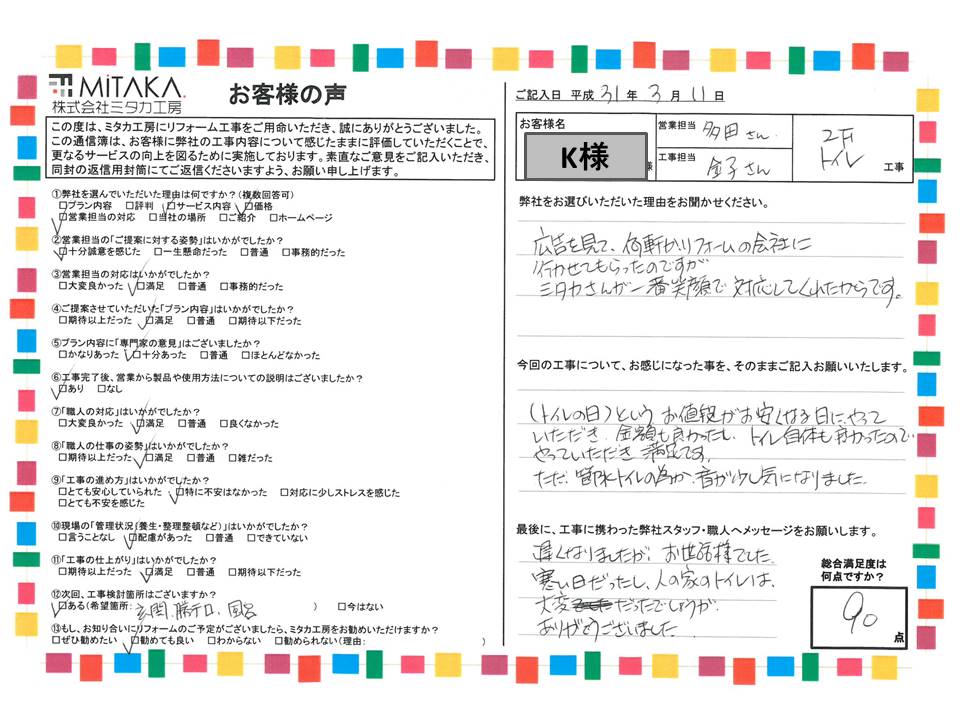 MiTAKA.
株式会社ミタカ工房
お客様の声
この度は、ミタカ工房にリフォーム工事をご用命いただき、誠にありがとうございました。
この通信簿は、お客様に弊社の工事内容について感じたままに評価していただくことで、
更なるサービスの向上を図るために実施しております。素直なご意見をご記入いただき、
同封の返信用封筒にてご返信くださいますよう、お願い申し上げます。
①弊社を選んでいただいた理由は何ですか?(複数回答可)
□プラン内容 □評判 □サービス内容 □価格
□営業担当の対応 □当社の場所 □ご紹介 □ホームページ
②営業担当の「ご提案に対する姿勢」はいかがでしたか?
□十分誠意を感じた □一生懸命だった □普通 □事務的だった
③営業担当の対応はいかがでしたか?
□大変良かった □満足 □普通 □事務的だった
④ご提案させていただいた「プラン内容」はいかがでしたか?
□期待以上だった □満足 □普通 □期待以下だった
⑤プラン内容に「専門家の意見」はございましたか?
□かなりあった □十分あった □普通 □ほとんどなかった
⑥工事完了後、営業から製品や使用方法についての説明はございましたか?
□あり □なし
⑦「職人の対応」はいかがでしたか?
□大変良かった □満足 □普通 □良くなかった
⑧「職人の仕事の姿勢」はいかがでしたか?
□期待以上だった □満足 □普通 □雑だった
⑨「工事の進め方」はいかがでしたか?
□とても安心していられた □特に不安はなかった □対応に少しストレスを感じた
□とても不安を感じた
⑩現場の「管理状況(養生・整理整頓など)」はいかがでしたか?
□言うことなし □配慮があった □普通 □できていない
⑪「工事の仕上がり」はいかがでしたか?
□期待以上だった □満足 □普通 □期待以下だった
⑫次回、工事検討箇所はございますか?
□ある(希望箇所: 玄関、勝手口、風呂 ) □今はない
⑬もし、お知り合いにリフォームのご予定がございましたら、ミタカ工房をお勧めいただけますか?
□ぜひ勧めたい □勧めても良い □わからない □勧められない(理由: )
ご記入日 平成 31 年 3 月 11 日
お客様名
K様
様
営業担当 多田 さん
工事担当 金子 さん
2F
トイレ
工事
弊社をお選びいただいた理由をお聞かせください。
広告を見て、何軒かリフォームの会社に
行かせてもらったのですが
ミタカさんが一番笑顔で対応してくれたからです。
今回の工事について、お感じになった事を、そのままご記入お願いいたします。
(トイレの日)という お値段がお安くなる日にやって
いただき、金額も良かったし、トイレ自体も良かったので
やっていただき 満足です。
ただ、節水トイレの為か、音が少し気になりました。
最後に、工事に携わった弊社スタッフ・職人へメッセージをお願いします。
遅くなりましたが、お世話様でした。
寒い日だったし、人の家のトイレは、
大変だったでしょうが、
ありがとうございました。
総合満足度は
何点ですか?
90
点